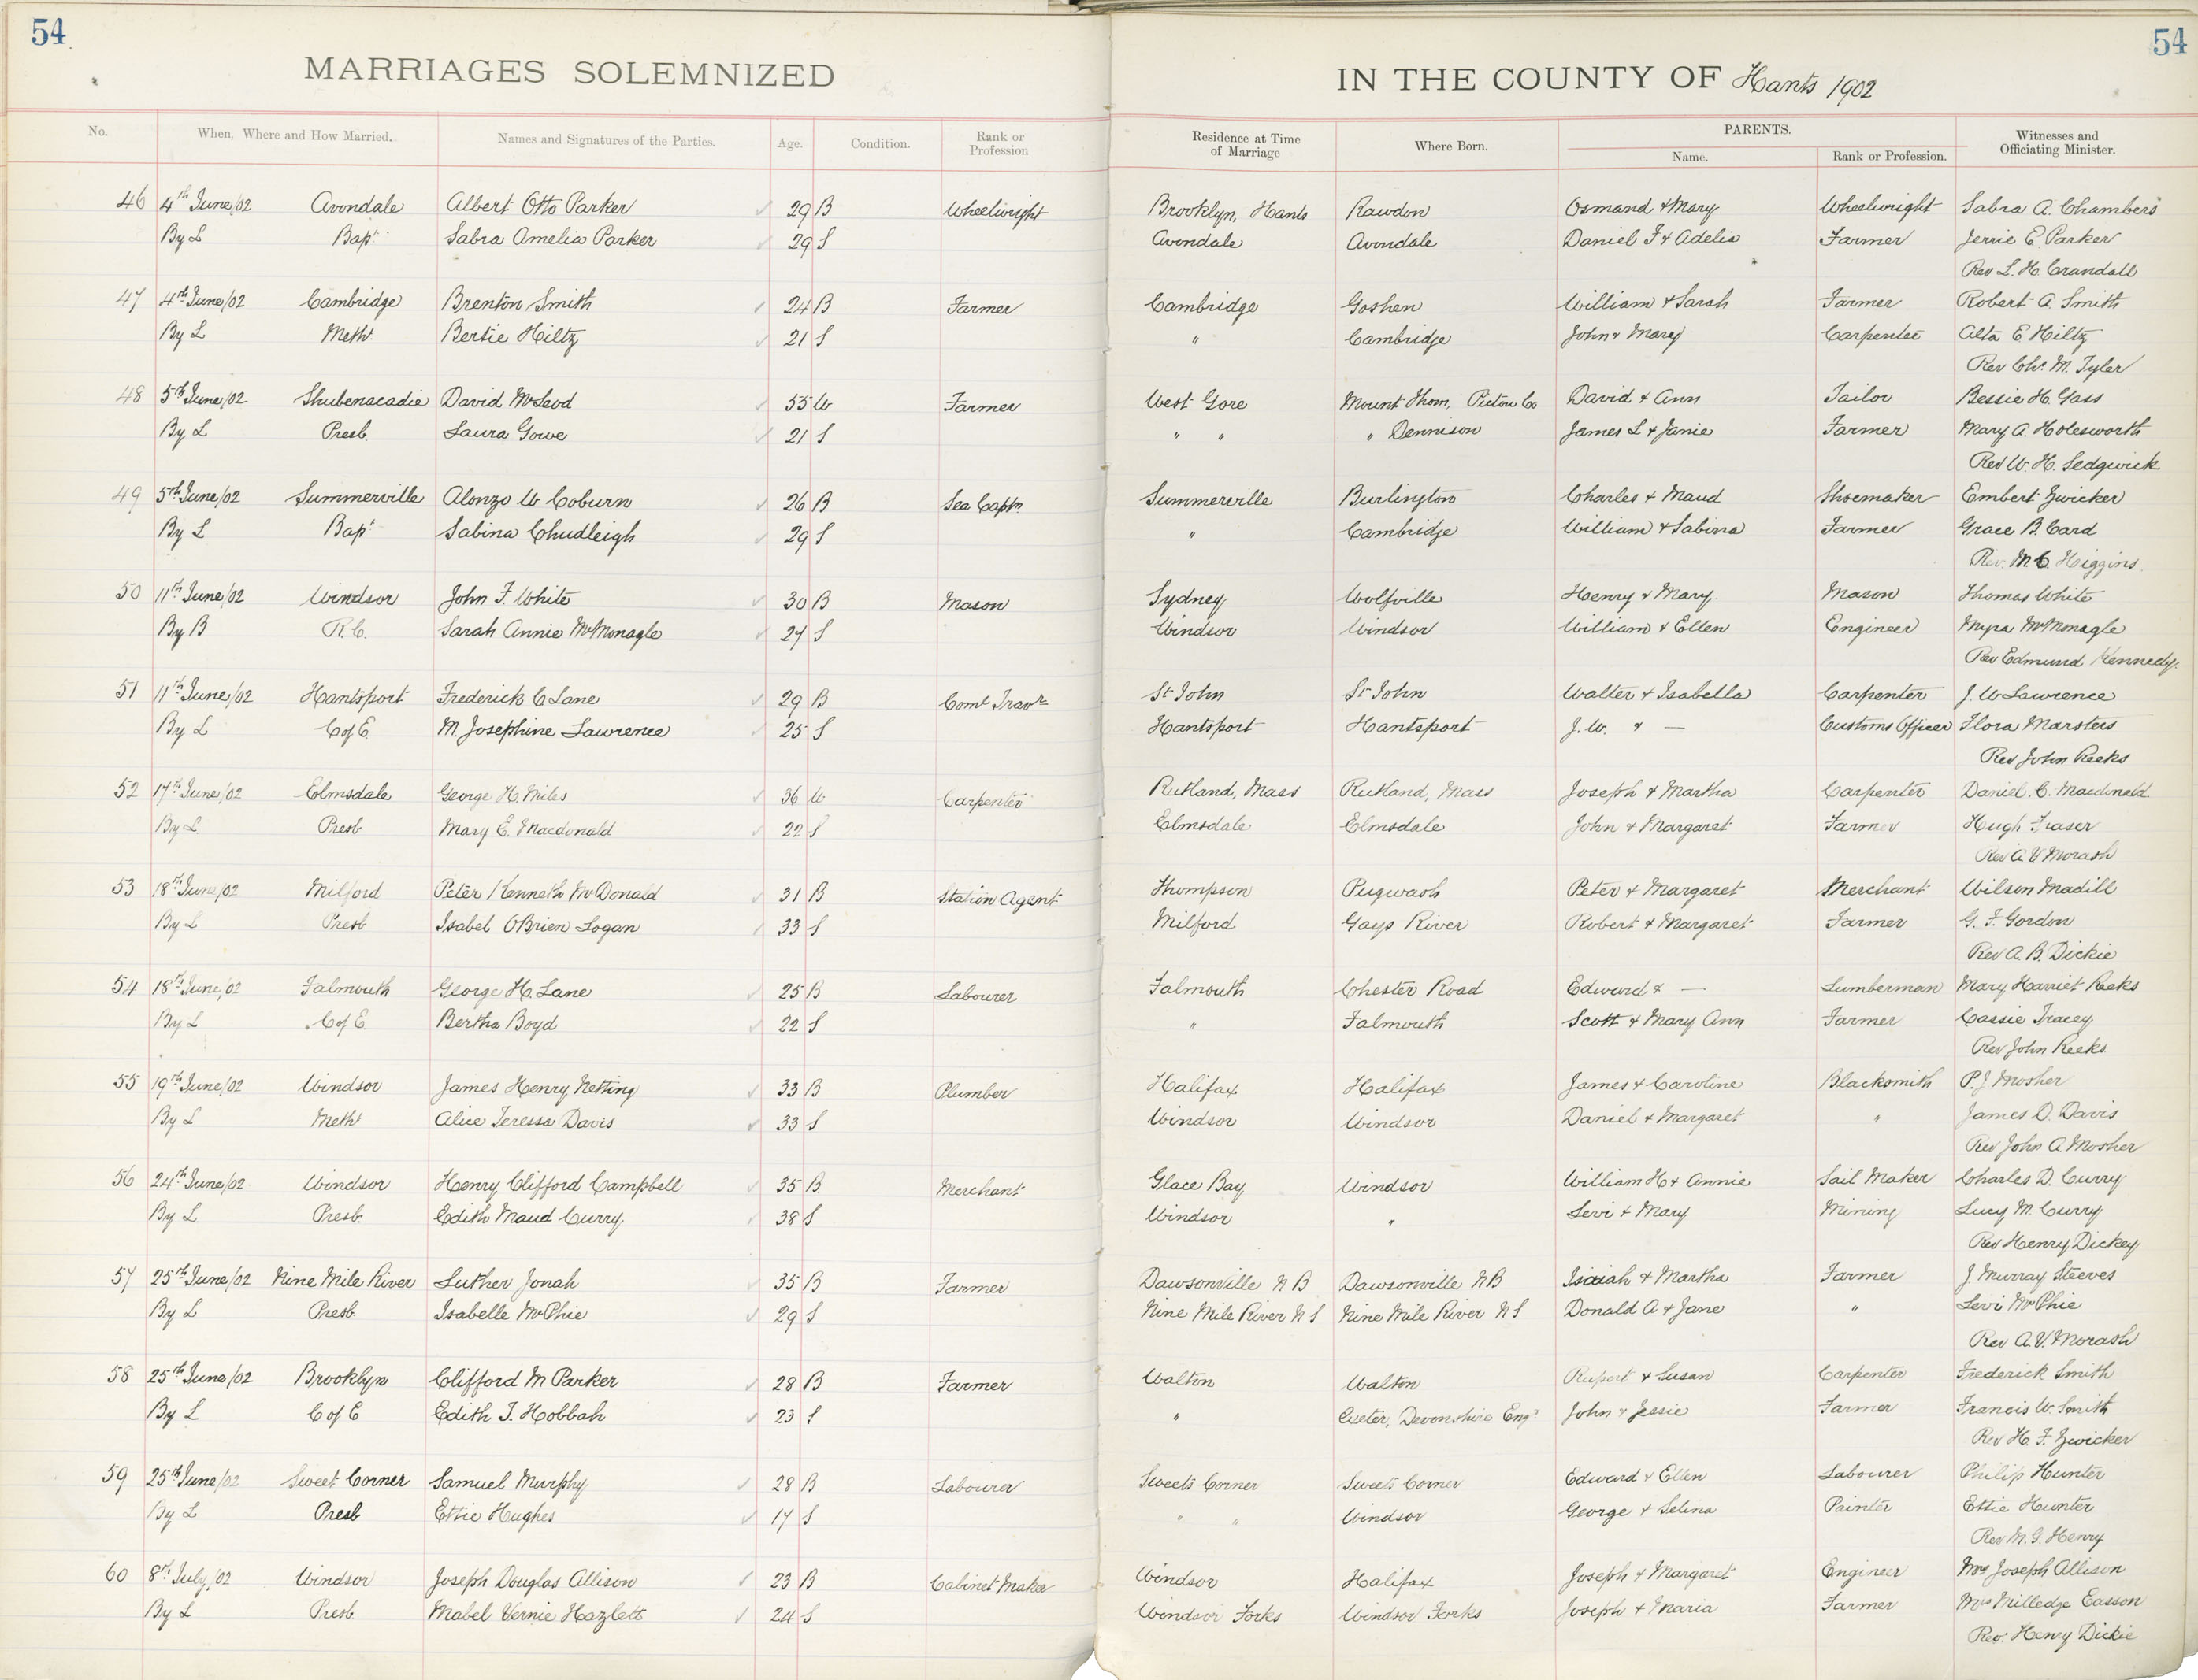 54
54
MARRIAGES SOLEMNIZED IN THE COUNTY OF Hants 1902
No. When, Where and How Married. Names and Signatures of the Parties. Age. Condition. Rank or Profession Residence at Time of Marriage Where Born. PARENTS. Name. Rank or Profession. Witnesses and Officiating Minister.
46 4th June/02 Avondale Albert Otto Parker 29 B Wheelwright Brooklyn, Hants Rawdon Osmand & Mary Wheelwright Sabra A. Chambers
By L Bapt Sabra Amelia Parker 29 S Avondale Avondale Daniel F & Adelia Farmer Jerrie E. Parker
Rev L. H. Crandall
47 4th June/02 Cambridge Brenton Smith 24 B Farmer Cambridge Goshen William & Sarah Farmer Robert A. Smith
By L Meth. Bertie Hiltz 21 S " Cambridge John & Mary Carpenter Alta E Hiltz
Rev Chs. M. Tyler
48 5th June/02 Shubenacadie David McLeod 55 W Farmer West Gore Mount Thom, Pictou Co David & Ann Tailor Bessie H. Gass
By L Presb. Laura Gowe 21 S " " " Dennison James L & Janie Farmer Mary A. Holesworth
Rev W. H. Sedgwick
49 5th June/02 Summerville Alonzo W Coburn 26 B Sea Captn. Summerville Burlington Charles & Maud Shoemaker Embert Zwicker
By L Bapt Sabina Chudleigh 29 S " Cambridge William & Sabina Farmer Grace B. Card
Rev. M. C. Higgins.
50 11th June/02 Windsor John F. White 30 B Mason Sydney Wolfville Henry & Mary. Mason Thomas White
By B R.C. Sarah Annie McMonagle 27 S Windsor Windsor William & Ellen Engineer Myra McMonagle
Rev Edmund Kennedy.
51 11th June/02 Hantsport Frederick C Lane 29 B Coml Travr St John St John Walter & Isabella Carpenter J. W Lawrence
By L C of E. M. Josephine Lawrence 25 S Hantsport Hantsport J. W. & — Customs Officer Flora Marsters
Rev John Reeks
52 17th June/02 Elmsdale George H. Miles 36 W Carpenter Rutland, Mass Rutland, Mass Joseph & Martha Carpenter Daniel. C. Macdonald
By L Presb Mary E. Macdonald 22 S Elmsdale Elmsdale John & Margaret Farmer Hugh Fraser
Rev A. V Morash
53 18th June/02 Milford Peter Kenneth McDonald 31 B Station Agent Thompson Pugwash Peter & Margaret Merchant Wilson Madill
By L Presb Isabel OBrien Logan 33 S Milford Gays River Robert & Margaret Farmer G. F. Gordon
Rev A. B. Dickie
54 18th June/02 Falmouth George H. Lane 25 B Labourer Falmouth Chester Road Edward & — Lumberman Mary Harriet Reeks
By L C of E. Bertha Boyd 22 S " Falmouth Scott & Mary Ann Farmer Cassie Tracey
Rev John Reeks
55 19th June/02 Windsor James Henry Netting 33 B Plumber Halifax Halifax James & Caroline Blacksmith P. J Mosher
By L Meth Alice Teressa Davis 33 S Windsor Windsor Daniel & Margaret " James D. Davis
Rev John A Mosher
56 24th June/02 Windsor Henry Clifford Campbell 35 B Merchant Glace Bay Windsor William H & Annie Sail Maker Charles D. Curry
By L Presb. Edith Maud Curry 38 S Windsor " Levi & Mary Mining Lucy M. Curry
Rev Henry Dickey
57 25th June/02 Nine Mile River Luther Jonah 35 B Farmer Dawsonville N B Dawsonville N B Isaiah & Martha Farmer J. Murray Steeves
By L Presb. Isabelle McPhie 29 S Nine Mile River N S Nine Mile River N S Donald A & Jane " Levi McPhie
Rev A. V. Morash
58 25th June/02 Brooklyn Clifford M Parker 28 B Farmer Walton Walton Rupert & Susan Carpenter Frederick Smith
By L C of E Edith J. Hobbah 23 S " Exeter, Devonshire Engd John & Jessie Farmer Francis W. Smith
Rev H. F. Zwicker
59 25th June/02 Sweet Corner Samuel Murphy 28 B Labourer Sweets Corner Sweets Corner Edward & Ellen Labourer Philip Hunter
By L Presb Ettie Hughes 17 S " " Windsor George & Selina Painter Ettie Hunter
Rev M. G. Henry
60 8th July/02 Windsor Joseph Douglas Allison 23 B Cabinet Maker Windsor Halifax Joseph & Margaret Engineer Mrs Joseph Allison
By L Presb. Mabel Vernie Hazlett 24 S Windsor Forks Windsor Forks Joseph & Maria Farmer Mrs Milledge Easson
Rev. Henry Dickie